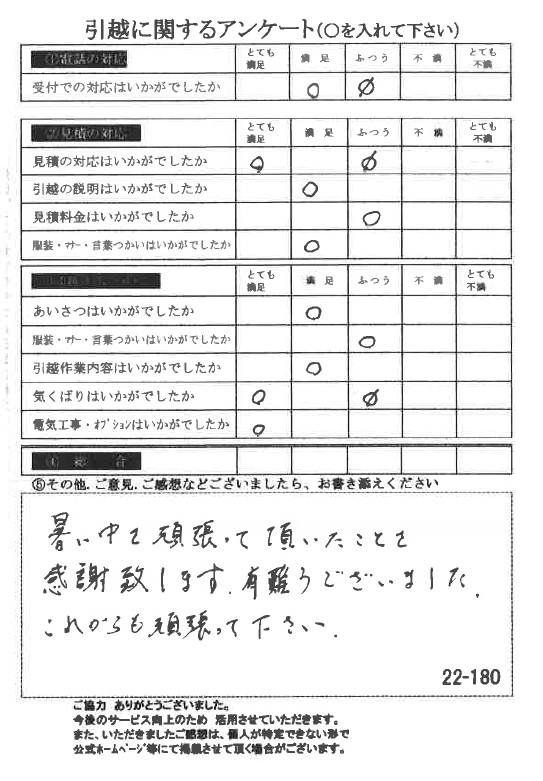 引越に関するアンケート(○を入れて下さい)
①電話の対応 とても満足 満足 ふつう 不満 とても不満
受付での対応はいかがでしたか ○ ∅
②見積の対応 とても満足 満足 ふつう 不満 とても不満
見積の対応はいかがでしたか ○ ∅
引越の説明はいかがでしたか ○
見積料金はいかがでしたか ○
服装・マナー・言葉つかいはいかがでしたか ○
とても満足 満足 ふつう 不満 とても不満
あいさつはいかがでしたか ○
服装・マナー・言葉つかいはいかがでしたか ○
引越作業内容はいかがでしたか ○
気くばりはいかがでしたか ○ ∅
電気工事・オプションはいかがでしたか ○
④総合
⑤その他.ご意見.ご感想などございましたら、お書き添えください
暑い中を頑張って頂いたことを
感謝致します.有難うございました.
これからも頑張って下さい.
22-180
ご協力 ありがとうございました。
今後のサービス向上のため 活用させていただきます。
また、いただきましたご感想は、個人が特定できない形で
公式ホームページ等にて掲載させて頂く場合がございます。